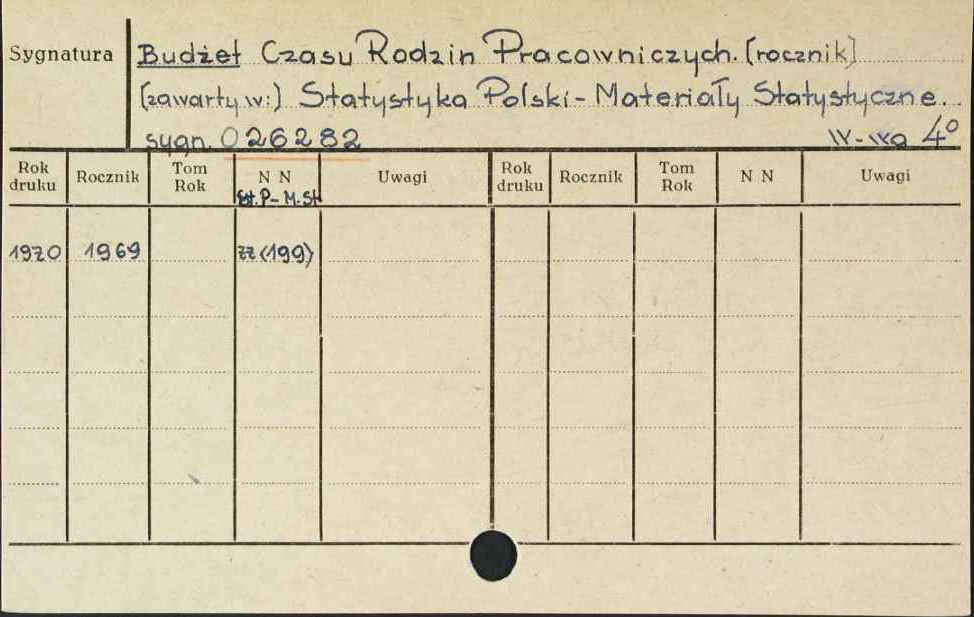 Sygnatura
Budżet Czasu Rodzin Pracowniczych. [rocznik]
(zawarty w:) Statystyka Polski - Materiały Statystyczne.
sygn. 026282 W-wa 4°
Rok druku Rocznik Tom Rok N N Uwagi Rok druku Rocznik Tom Rok N N Uwagi
St. P - M. St
1970 1969 zz (199)